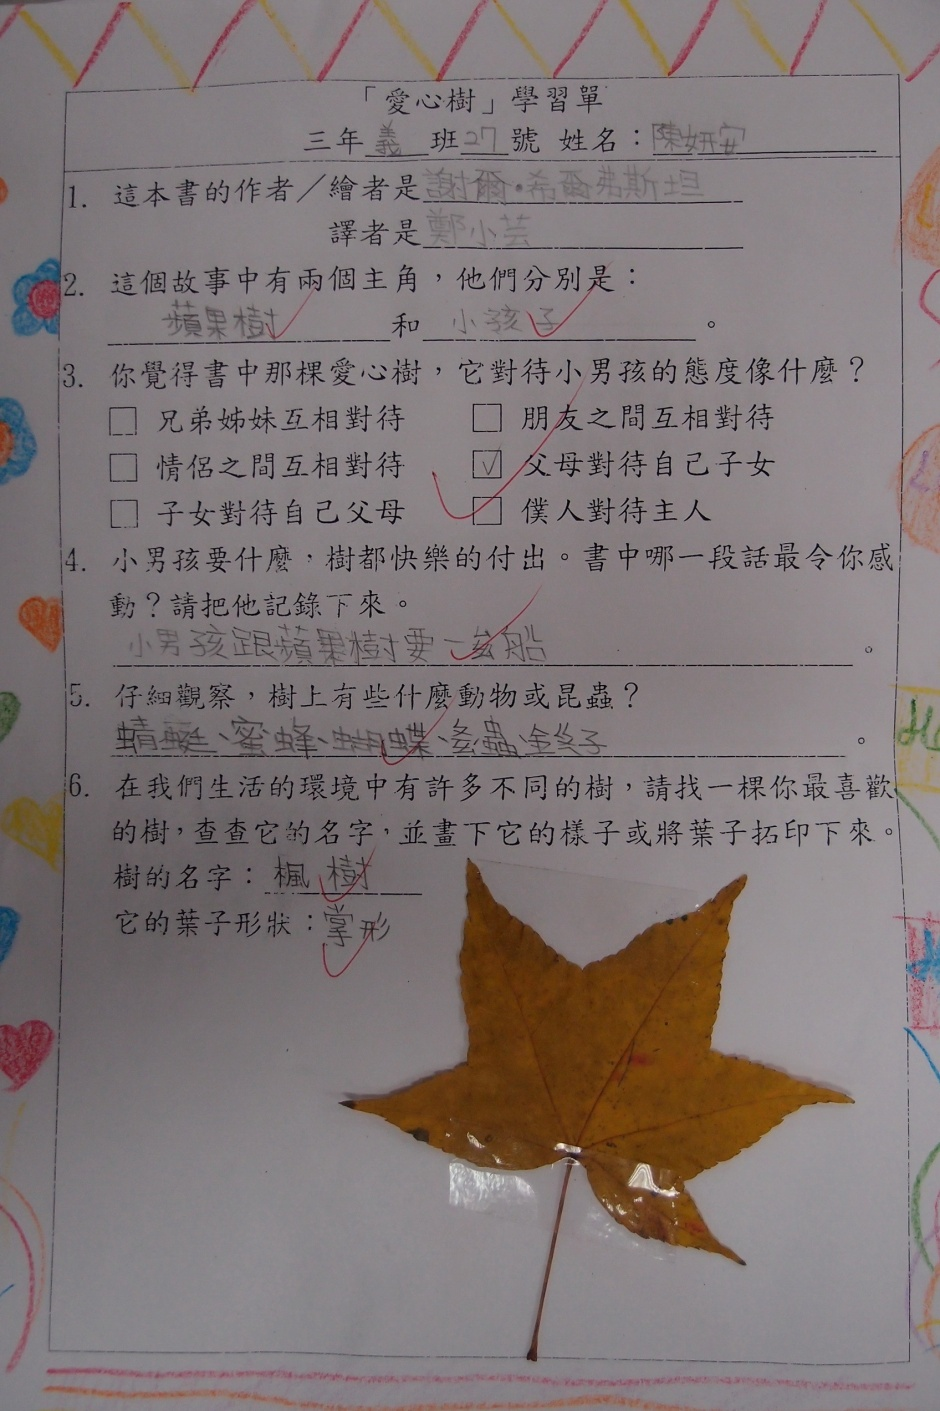 「愛心樹」學習單
三年義班27號 姓名：陳妍安
1. 這本書的作者／繪者是謝爾·希爾弗斯坦
譯者是鄭小芸
2. 這個故事中有兩個主角，他們分別是：
蘋果樹和小孩子。
3. 你覺得書中那棵愛心樹，它對待小男孩的態度像什麼？
□ 兄弟姊妹互相對待 □ 朋友之間互相對待
□ 情侶之間互相對待 ☑ 父母對待自己子女
□ 子女對待自己父母 □ 僕人對待主人
4. 小男孩要什麼，樹都快樂的付出。書中哪一段話最令你感
動？請把他記錄下來。
小男孩跟蘋果樹要一艘船。
5. 仔細觀察，樹上有些什麼動物或昆蟲？
蜻蜓、蜜蜂、蝴蝶、毛蟲、金絲子。
6. 在我們生活的環境中有許多不同的樹，請找一棵你最喜歡
的樹，查查它的名字，並畫下它的樣子或將葉子拓印下來。
樹的名字：楓樹
它的葉子形狀：掌形